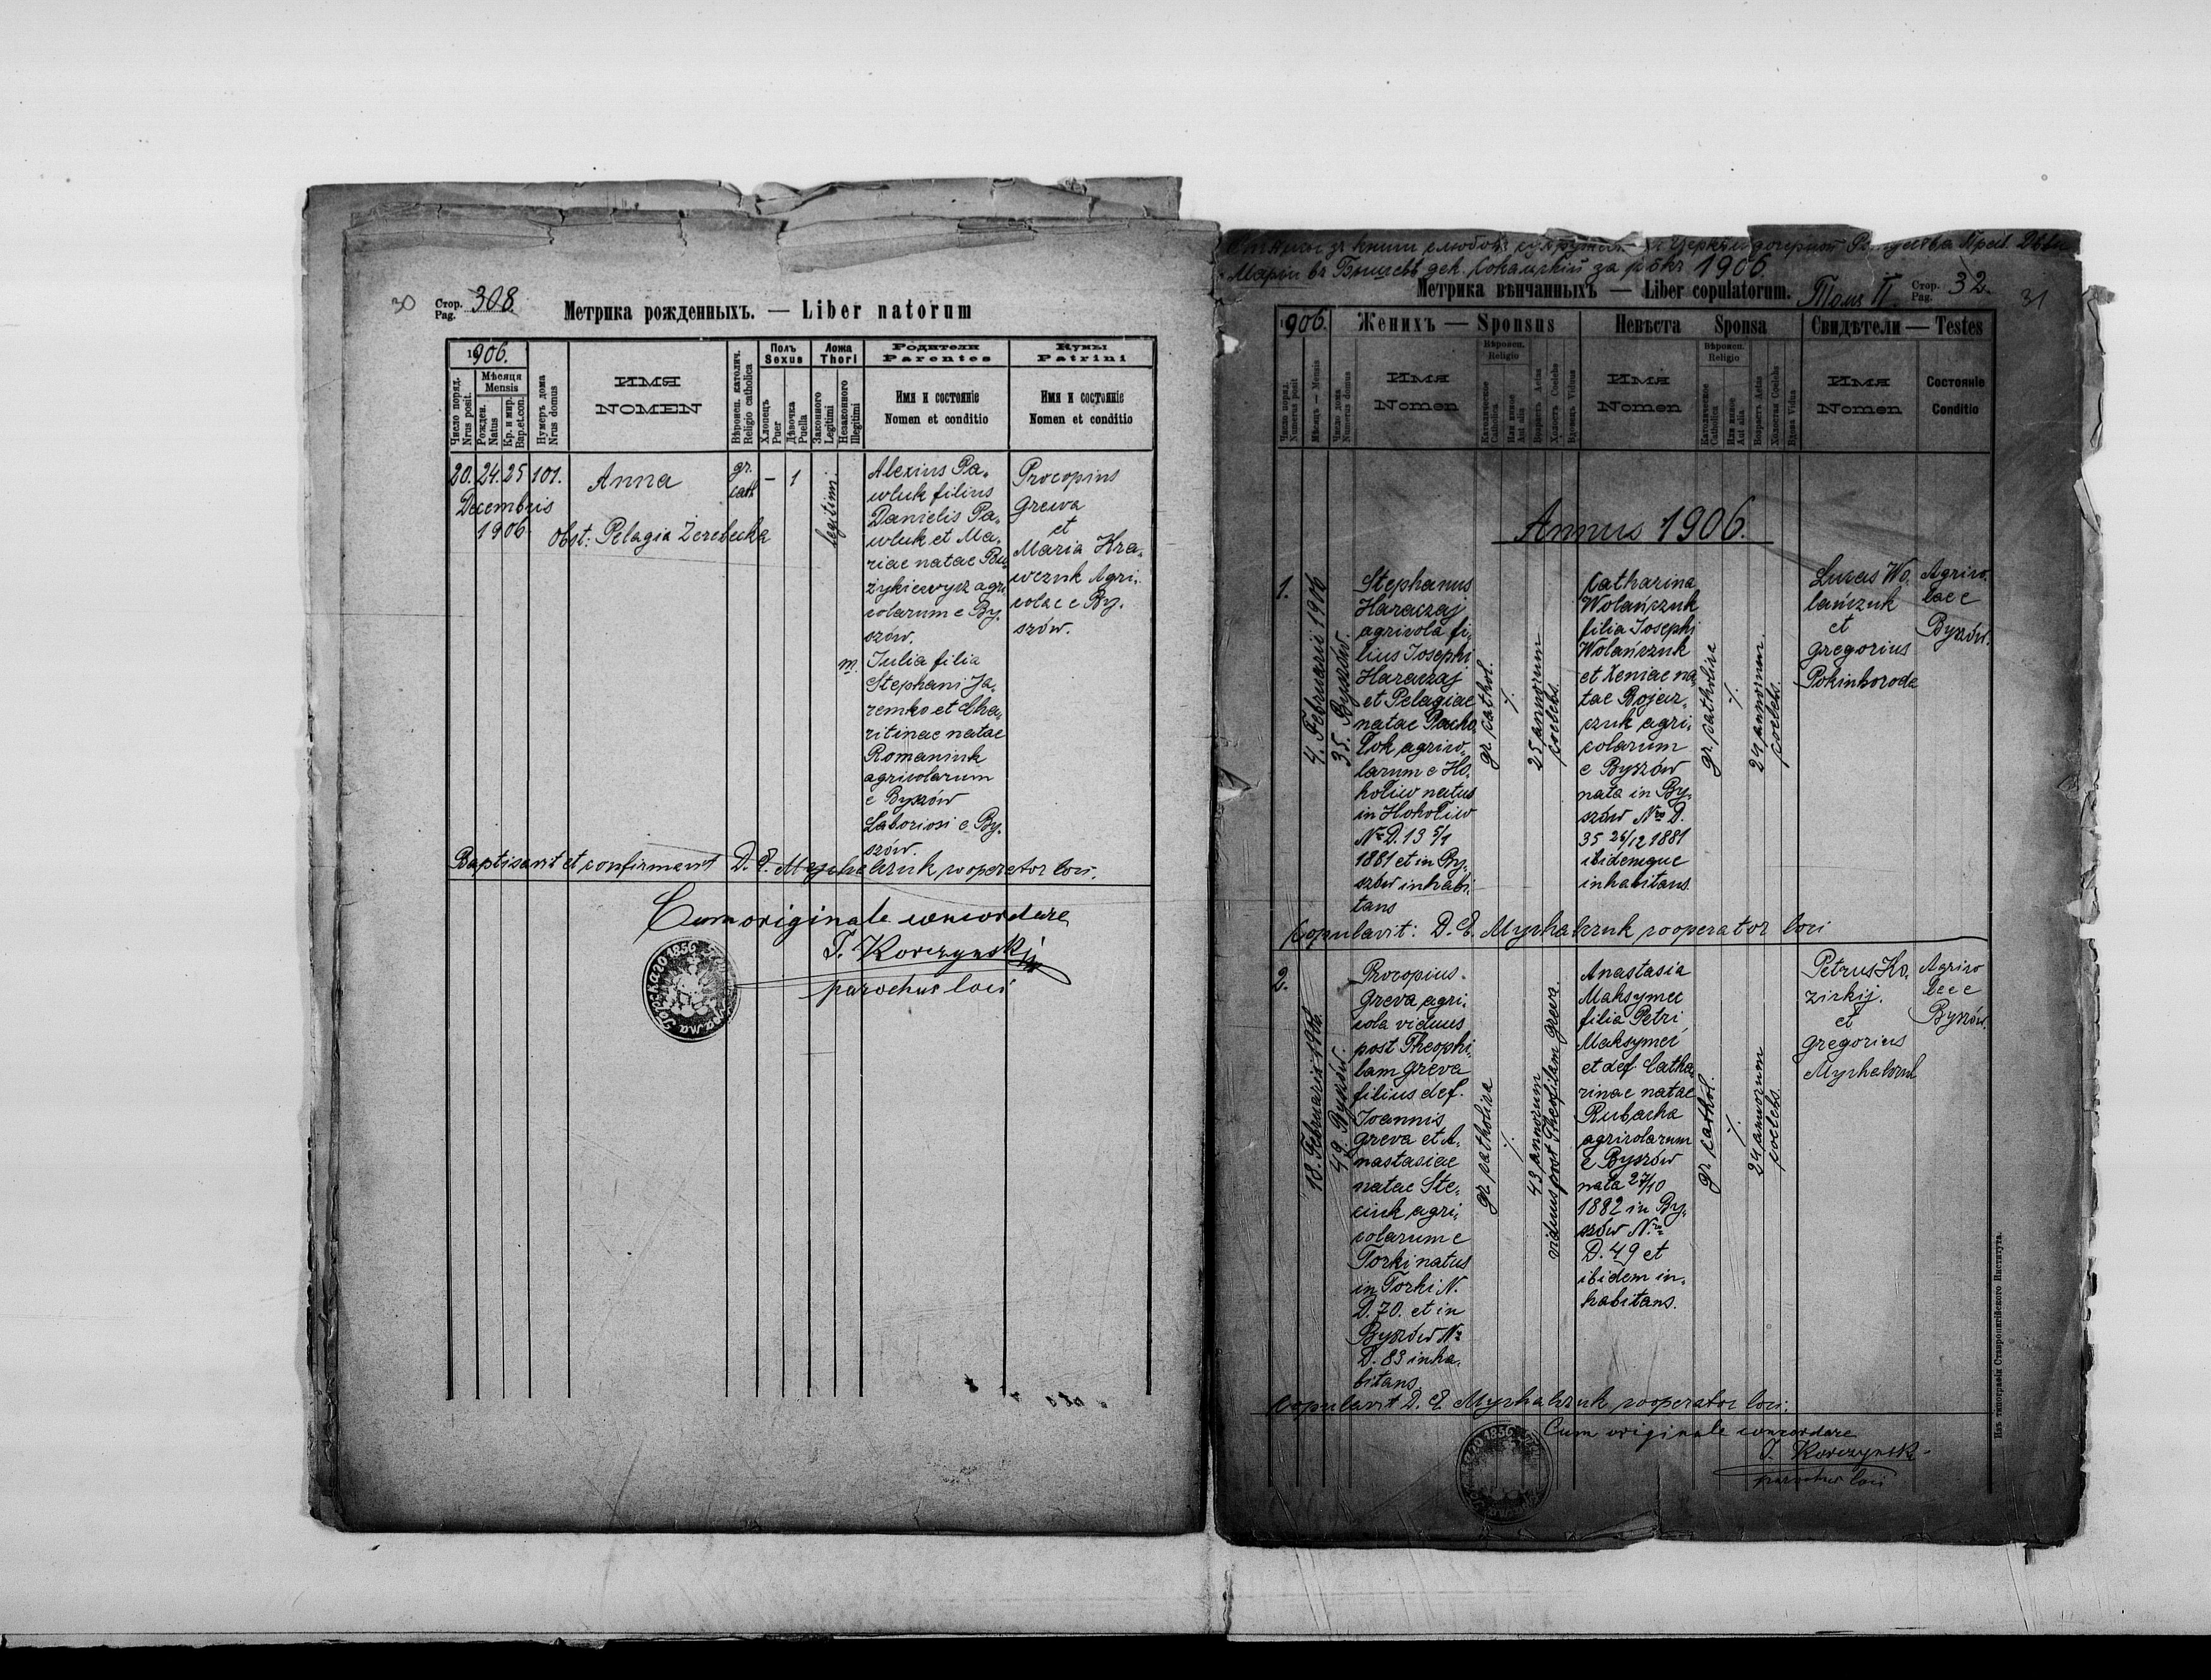 30
Стор. Pag. 308.
Метрика рожденныхъ. — Liber natorum
1906.
Число поряд. Nrus posit.
Мѣсяця Mensis
Рожден. Natus
Кр. и мир. Bap. et con.
Нумеръ дома Nrus domus
ИМЯ
NOMEN
Вѣроисп. католич. Religio catholica
Полъ Sexus
Хлопецъ Puer
Дѣвочка Puella
Ложа Thori
Законного Legitimi
Незаконного Illegitimi
Родители
Parentes
Имя и состоянie
Nomen et conditio
Кумы
Patrini
Имя и состоянie
Nomen et conditio
20. 24. 25 101.
Decembris
1906
Anna
obst: Pelagia Zerebecka
gr. cath
– 1
legitimi.
Alexius Pa-
wluk filius
Danielis Pa-
wluk et Ma-
riae natae Bu-
żykiewycz agri-
colarum e By-
szów.
m. Julia filia
Stephani Ja-
remko et Cha-
ritinae natae
Romaniuk
agricolarum
e Byszów
Laboriosi e By-
szów.
Procopius
Grewa
et
Maria Kra-
wczuk Agri-
colae e By-
szów.
Baptisavit et confirmavit D. E. Mychalczuk cooperator loci.
Cum originale concordare
T. Korczynski
parochus loci
Марiи въ Бышевѣ дек. Сокальскiй за рôкъ 1906.
Метрика вѣнчанныхъ — Liber copulatorum. Томъ II. Стор. Pag. 32.
31
1906.
Женихъ — Sponsus
Невѣста Sponsa
Свидѣтели — Testes
Число поряд. Numerus posit
Мѣсяцъ — Mensis
Число дома Numerus domus
Имя
Nomen
Вѣроисп. Religio
Католическое Catholica
Или инное Aut alia
Возрастъ Aetas
Холостъ Coelebs
Вдовецъ Viduus
Имя
Nomen
Вѣроисп. Religio
Католическое Catholica
Или инное Aut alia
Возрастъ Aetas
Холостая Coelebs
Вдова Vidua
Имя
Nomen
Состоянie
Conditio
Annus 1906.
1.
4. Februarii 1906
35. Byszów.
Stephanus
Haraczaj
agricola fi-
lius Josephi
Haraczaj
et Pelagiae
natae Pacho-
łok agrico-
larum e Ho-
holiw natus
in Hoholiw
Nr D. 13 5/1
1881 et in By-
szów inhabi-
tans
gr. cathol.
·/.
25 annorum
coelebs.
Catharina
Wolańczuk
filia Josephi
Wolańczuk
et Xeniae na-
tae Bojar-
czuk agri-
colarum
e Byszów
nata in By-
szów Nro D.
35 26/12 1881
ibidemque
inhabitans.
gr. catholica
·/.
24 annorum.
coelebs.
Lucas Wo-
lańczuk
et
Gregorius
Pokinboroda
Agrico-
lae e
Byszów.
Copulavit: D. E. Mychalczuk cooperator loci
2.
18. Februarii 1906.
49. Byszów.
Procopius
Greva agri-
cola viduus
post Theophi-
lam Greva
filius def.
Joannis
Greva et A-
nastasiae
natae Ste-
ciuk agri-
colarum e
Torki natus
in Torki N.
D. 70. et in
Byszów Nr
D. 83 inha-
bitans
gr. catholica
·/.
43 annorum
viduus post Theofilam Greva.
Anastasia
Maksymec
filia Petri
Maksymec
et def. Catha-
rinae natae
Rubacha
agricolarum
e Byszów
nata 27/10
1882 in By-
szów Nro
D. 49 et
ibidem in-
habitans.
gr. cathol.
·/.
24 annorum
coelebs.
Petrus Ko-
zickij.
et
Gregorius
Mychalczuk
Agrico
lae e
Byszów.
Copulavit D. E. Mychalczuk cooperator loci.
Cum originale concordare
T. Korczynski
parochus loci
Изъ типографiи Ставропигiйского Института.